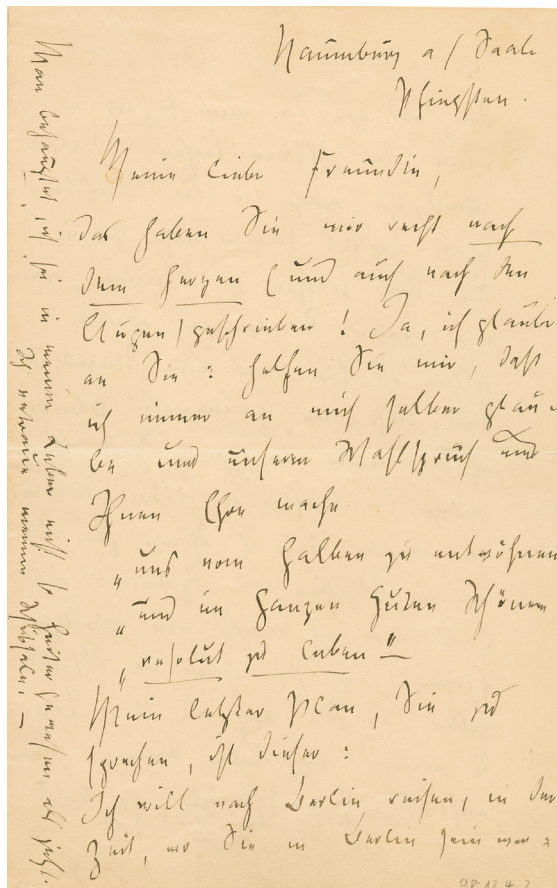 Naumburg a / Saale
Pfingsten.
Meine liebe Freundin,
das haben Sie mir recht nach
dem Herzen (und auch nach den
Augen) geschrieben! Ja, ich glaube
an Sie: helfen Sie mir, daß
ich immer an mich selber glau-
be und unserem Wahlspruch und
Ihnen Ehre mache
„uns vom Halben zu entwöhnen
„und im Ganzen Guten Schönen
„resolut zu leben“ —
Mein letzter Plan, Sie zu
sprechen, ist dieser:
Ich will nach Berlin reisen, in der
Zeit, wo Sie in Berlin sein wer-
Man behauptet, ich sei in meinem Leben nicht so heiter gewesen als jetzt.
Ich vertraue meinem Schicksale. —